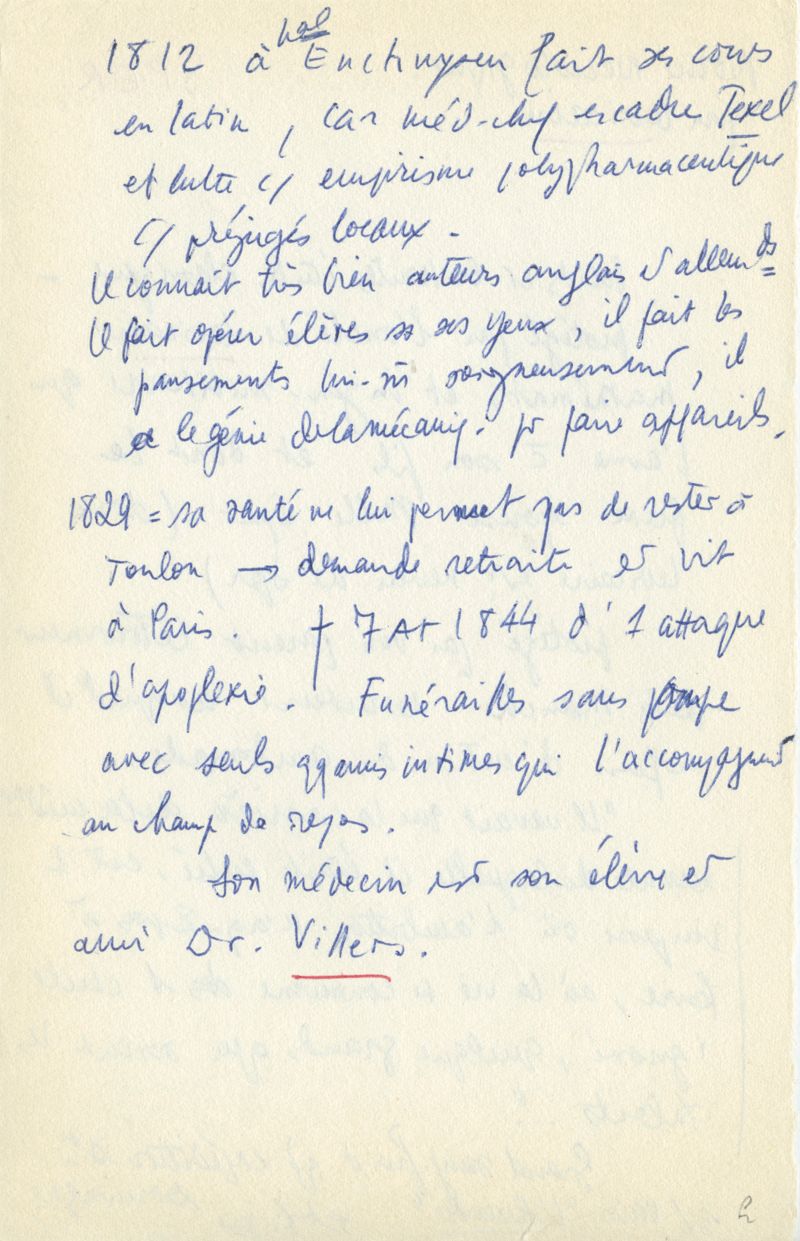 1812 à hol Enchuysen fait ses cours
en latin, car méd-chef escadre Texel
et lutte c/ empirisme polypharmaceutique
c/ préjugés locaux.
Il connait très bien auteurs anglais et allemds
Il fait opérer élèves ss ses yeux, il fait les
pansements lui-m̄ soigneusement, il
a le génie de la mécaniq. pr faire appareils.
1829 = sa santé ne lui permet pas de rester à
Toulon → demande retraite et vit
à Paris. † 7 At 1844 d'1 attaque
d'apoplexie. Funérailles sans pompe
avec seuls qq amis intimes qui l'accompagnent
au champ de repos.
Son médecin est son élève et
ami Dr. Villers.
2